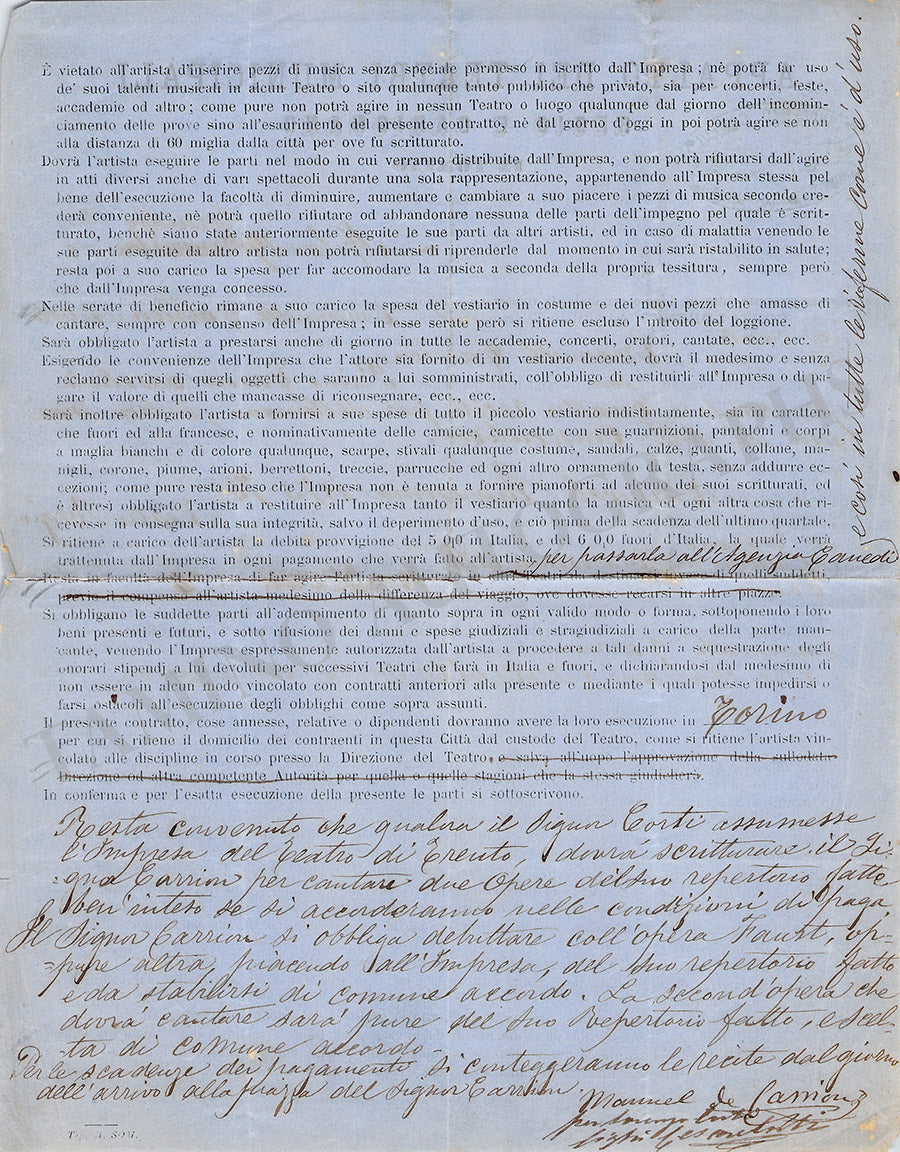 È vietato all'artista d'inserire pezzi di musica senza speciale permesso in iscritto dall'Impresa; nè potrà far uso
de' suoi talenti musicali in alcun Teatro o sito qualunque tanto pubblico che privato, sia per concerti, feste,
accademie od altro; come pure non potrà agire in nessun Teatro o luogo qualunque dal giorno dell'incomin-
ciamento delle prove sino all'esaurimento del presente contratto, nè dal giorno d'oggi in poi potrà agire se non
alla distanza di 60 miglia dalla città per ove fu scritturato.
Dovrà l'artista eseguire le parti nel modo in cui verranno distribuite dall'Impresa, e non potrà rifiutarsi dall'agire
in atti diversi anche di vari spettacoli durante una sola rappresentazione, appartenendo all'Impresa stessa pel
bene dell'esecuzione la facoltà di diminuire, aumentare e cambiare a suo piacere i pezzi di musica secondo cre-
derà conveniente, nè potrà quello rifiutare od abbandonare nessuna delle parti dell'impegno pel quale è scrit-
turato, benchè siano state anteriormente eseguite le sue parti da altri artisti, ed in caso di malattia venendo le
sue parti eseguite da altro artista non potrà rifiutarsi di riprenderle dal momento in cui sarà ristabilito in salute;
resta poi a suo carico la spesa per far accomodare la musica a seconda della propria tessitura, sempre però
che dall'Impresa venga concesso.
Nelle serate di beneficio rimane a suo carico la spesa del vestiario in costume e dei nuovi pezzi che amasse di
cantare, sempre con consenso dell'Impresa; in esse serate però si ritiene escluso l'introito del loggione.
Sarà obbligato l'artista a prestarsi anche di giorno in tutte le accademie, concerti, oratori, cantate, ecc., ecc.
Esigendo le convenienze dell'Impresa che l'attore sia fornito di un vestiario decente, dovrà il medesimo e senza
reclamo servirsi di quegli oggetti che saranno a lui somministrati, coll'obbligo di restituirli all'Impresa o di pa-
gare il valore di quelli che mancasse di riconsegnare, ecc., ecc.
Sarà inoltre obbligato l'artista a fornirsi a sue spese di tutto il piccolo vestiario indistintamente, sia in carattere
che fuori ed alla francese, e nominativamente delle camicie, camicette con sue guarnizioni, pantaloni e corpi
a maglia bianchi e di colore qualunque, scarpe, stivali qualunque costume, sandali, calze, guanti, collane, ma-
nigli, corone, piume, arioni, berrettoni, treccie, parrucche ed ogni altro ornamento da testa, senza addurre ec-
cezioni; come pure resta inteso che l'Impresa non è tenuta a fornire pianoforti ad alcuno dei suoi scritturati, ed
è altresì obbligato l'artista a restituire all'Impresa tanto il vestiario quanto la musica ed ogni altra cosa che ri-
cevesse in consegna sulla sua integrità, salvo il deperimento d'uso, e ciò prima della scadenza dell'ultimo quartale,
Si ritiene a carico dell'artista la debita provvigione del 5 0|0 in Italia, e del 6 0|0 fuori d'Italia, la quale verrà
trattenuta dall'Impresa in ogni pagamento che verrà fatto all'artista, per passarla all'Agenzia Canedi
e così in tutte le riferme come è d'uso.
Resta in facoltà dell'Impresa di far agire l'artista scritturato in altri Teatri da destinarsi, invece di quelli suddetti,
previa il compenso all'artista medesimo della differenza del viaggio, ove dovesse recarsi in altre piazze.
Si obbligano le suddette parti all'adempimento di quanto sopra in ogni valido modo o forma, sottoponendo i loro
beni presenti e futuri, e sotto rifusione dei danni e spese giudiziali e stragiudiziali a carico della parte man-
cante, venendo l'Impresa espressamente autorizzata dall'artista a procedere a tali danni a sequestrazione degli
onorari stipendj a lui devoluti per successivi Teatri che farà in Italia e fuori, e dichiarandosi dal medesimo di
non essere in alcun modo vincolato con contratti anteriori alla presente e mediante i quali potesse impedirsi o
farsi ostacoli all'esecuzione degli obblighi come sopra assunti.
Il presente contratto, cose annesse, relative o dipendenti dovranno avere la loro esecuzione in Torino
per cui si ritiene il domicilio dei contraenti in questa Città dal custode del Teatro, come si ritiene l'artista vin-
colato alle discipline in corso presso la Direzione del Teatro, e salva all'uopo l'approvazione della sullodata
Direzione od altra competente Autorità per quella o quelle stagioni che la stessa giudicherà.
In conferma e per l'esatta esecuzione della presente le parti si sottoscrivono.
Resta convenuto che qualora il Signor Corti assumesse
l'Impresa del Teatro di Trento, dovrà scritturare il Si-
gnor Carrion per cantare due Opere del suo repertorio fatto
ben'inteso se si accorderanno nelle condizioni di paga
Il Signor Carrion si obbliga debuttare coll'opera Faust, op-
pure altra, piacendo all'Impresa, del suo repertorio fatto
e da stabilirsi di comune accordo. La second'opera che
dovrà cantare sarà pure del suo Repertorio fatto, e scel-
ta di comune accordo.
Per le scadenze dei pagamenti si conteggeranno le recite dal giorno
dell'arrivo alla piazza del Signor Carrion.
Manuel de Carrion